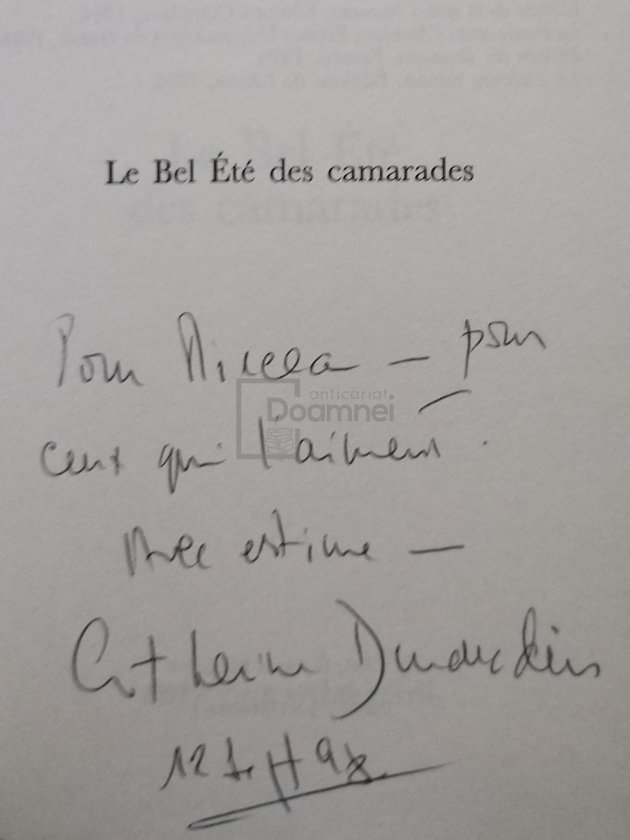 Le Bel Été des camarades
Pour Mircea — pour
anticariat
Doamnei
ceux qui l'aiment.
Avec estime —
Catherine Durandin
12 Sept 98